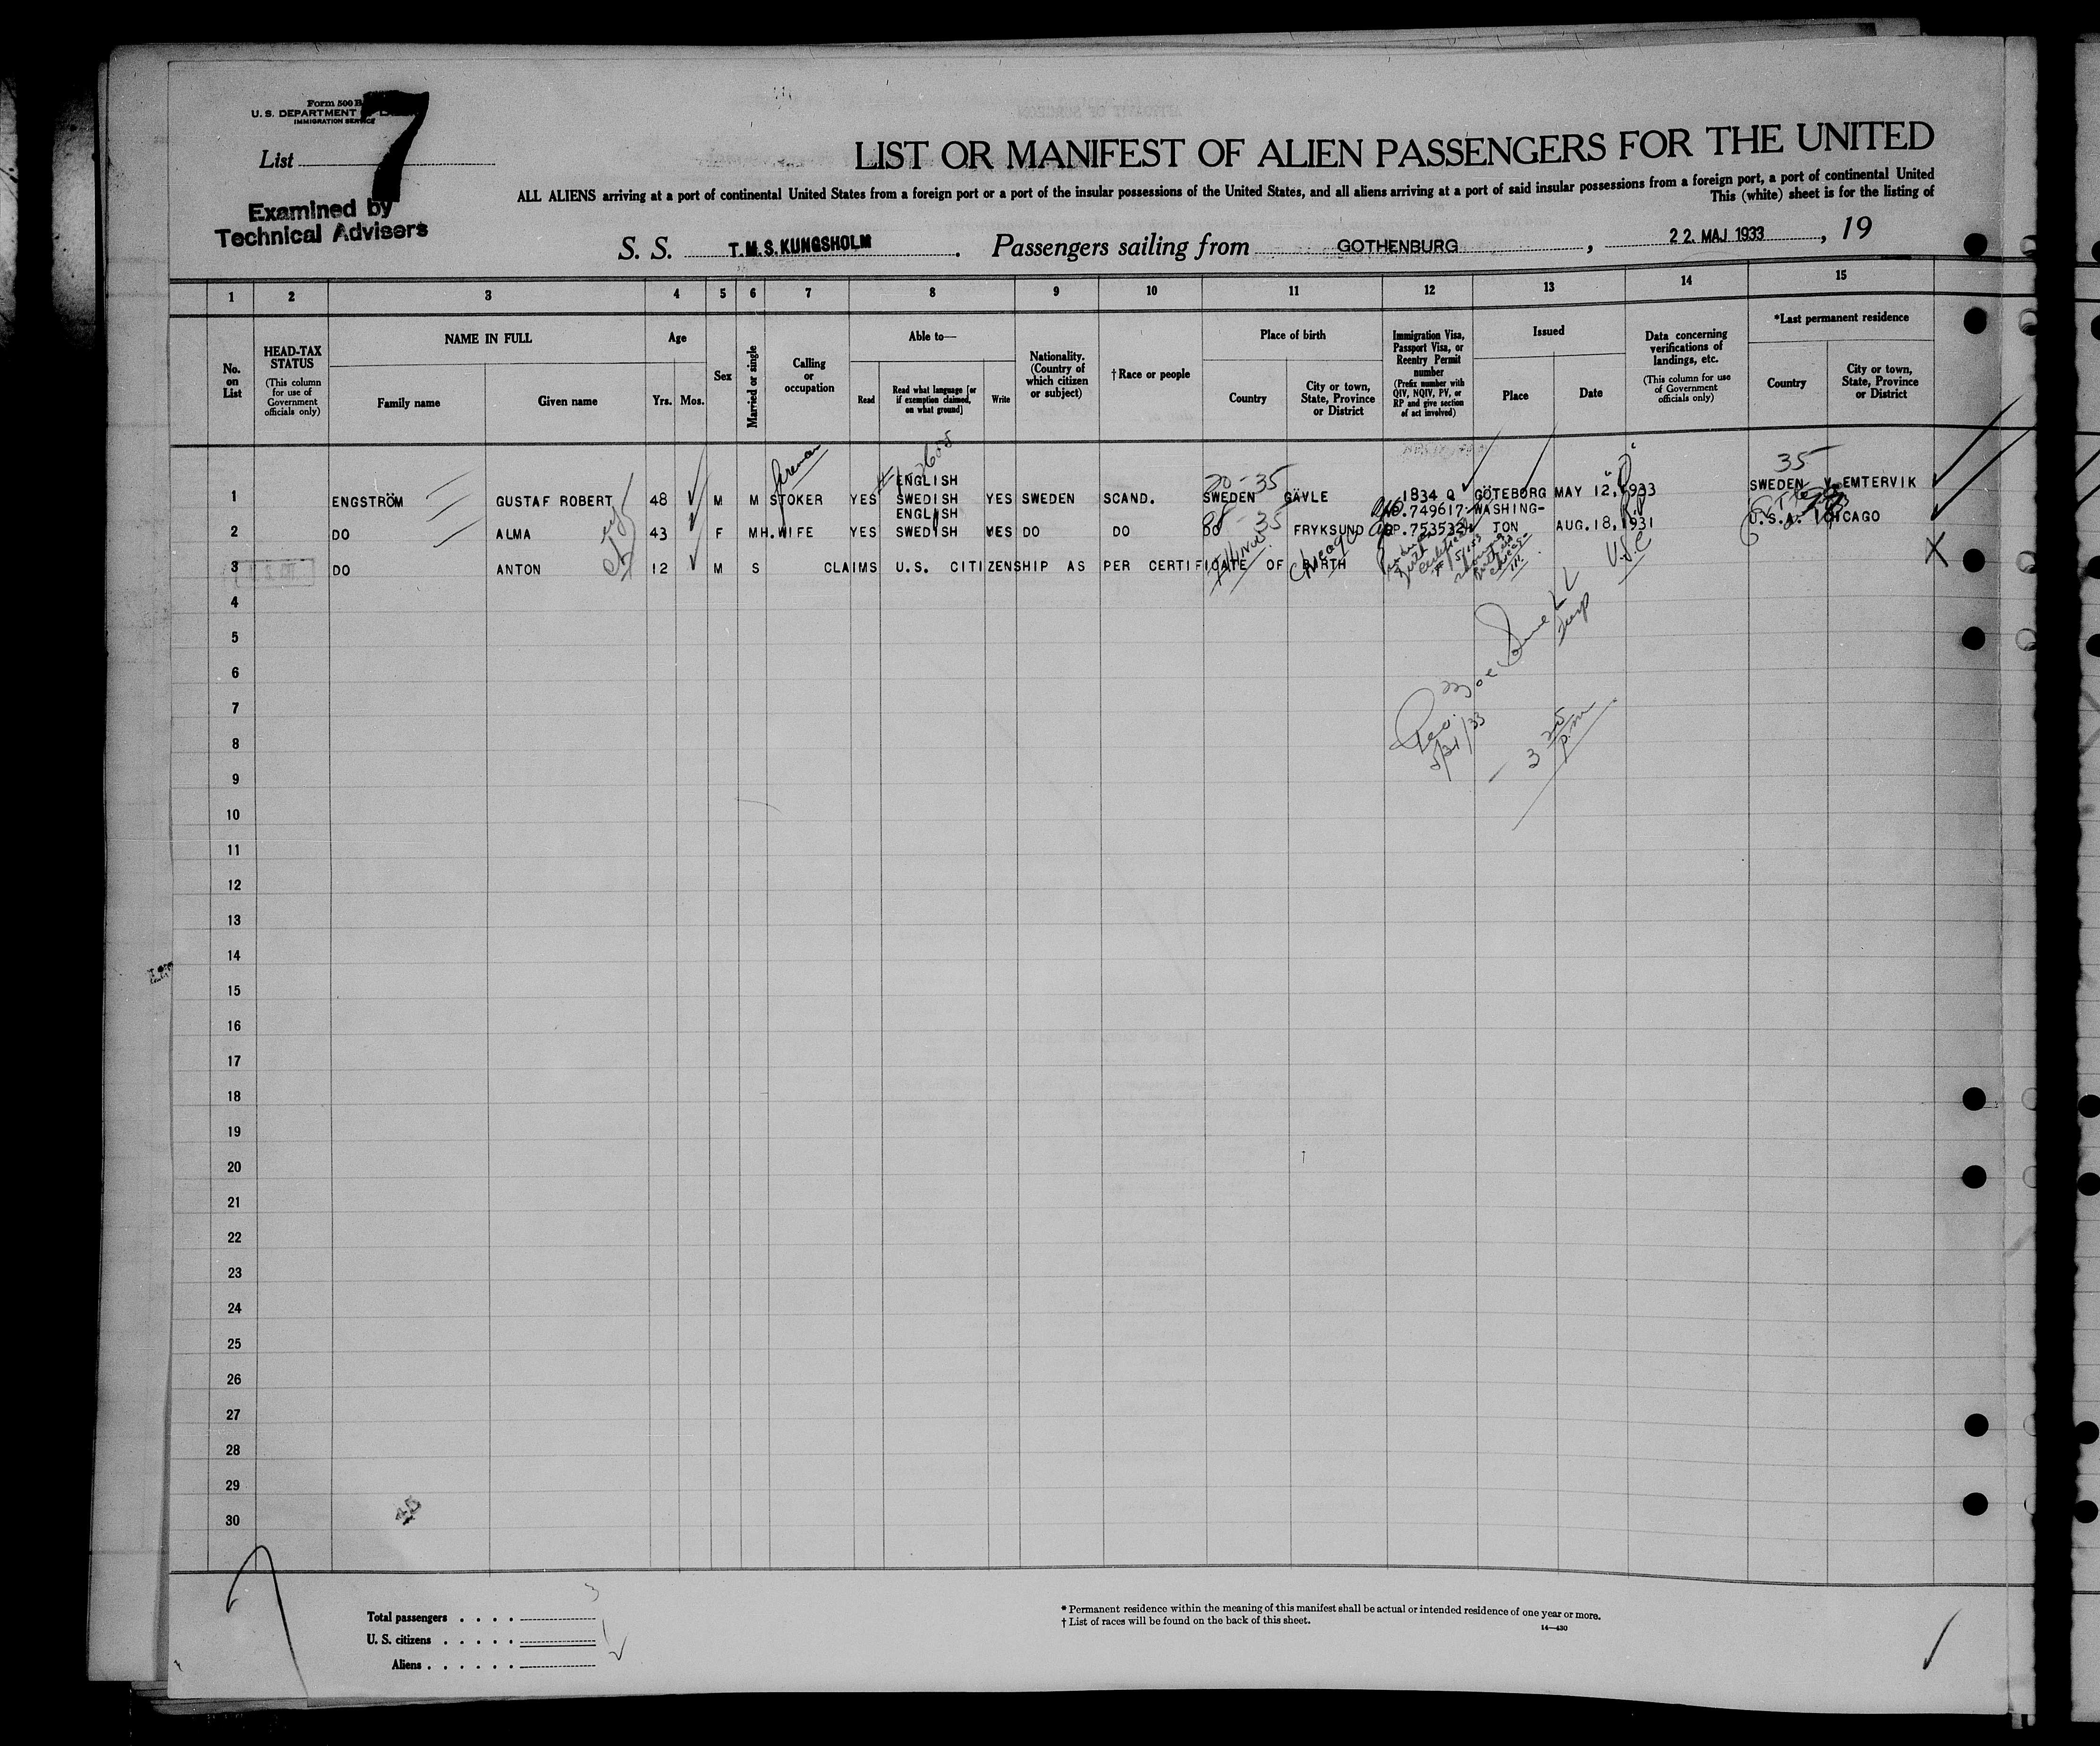 Form 500 B
U. S. DEPARTMENT
IMMIGRATION SERVICE
List 7
Examined by
Technical Advisers
LIST OR MANIFEST OF ALIEN PASSENGERS FOR THE UNITED
ALL ALIENS arriving at a port of continental United States from a foreign port or a port of the insular possessions of the United States, and all aliens arriving at a port of said insular possessions from a foreign port, a port of continental United
This (white) sheet is for the listing of
S. S. T.M.S. KUNGSHOLM. Passengers sailing from GOTHENBURG, 22. MAJ 1933, 19
1 2 3 4 5 6 7 8 9 10 11 12 13 14 15
No. on List
HEAD-TAX STATUS
(This column for use of Government officials only)
NAME IN FULL
Family name
Given name
Age
Yrs. Mos.
Sex
Married or single
Calling or occupation
Able to—
Read
Read what language [or if exemption claimed, on what ground]
Write
Nationality. (Country of which citizen or subject)
†Race or people
Place of birth
Country
City or town, State, Province or District
Immigration Visa, Passport Visa, or Reentry Permit number
(Prefix number with QIV, NQIV, PV, or RP and give section of act involved)
Issued
Place
Date
Data concerning verifications of landings, etc.
(This column for use of Government officials only)
*Last permanent residence
Country
City or town, State, Province or District
fireman
20-35
35
1 ENGSTRÖM GUSTAF ROBERT 48 M M STOKER YES ENGLISH SWEDISH YES SWEDEN SCAND. SWEDEN GÄVLE 1834 Q GÖTEBORG MAY 12, 1933 SWEDEN V. EMTERVIK
2 DO ALMA 43 F M H.WIFE YES ENGLISH SWEDISH YES DO DO DO FRYKSUND .749617 WASHINGTON AUG.18, 1931 U.S.A. CHICAGO
3 DO ANTON 12 M S CLAIMS U.S. CITIZENSHIP AS PER CERTIFICATE OF BIRTH
Illinois Chicago
U.S.C
5/31/33
3 25 p.m
4
5
6
7
8
9
10
11
12
13
14
15
16
17
18
19
20
21
22
23
24
25
26
27
28
29
30
Total passengers . . . . 3
U. S. citizens . . . . . 1
Aliens . . . . . .
* Permanent residence within the meaning of this manifest shall be actual or intended residence of one year or more.
† List of races will be found on the back of this sheet.
14—430